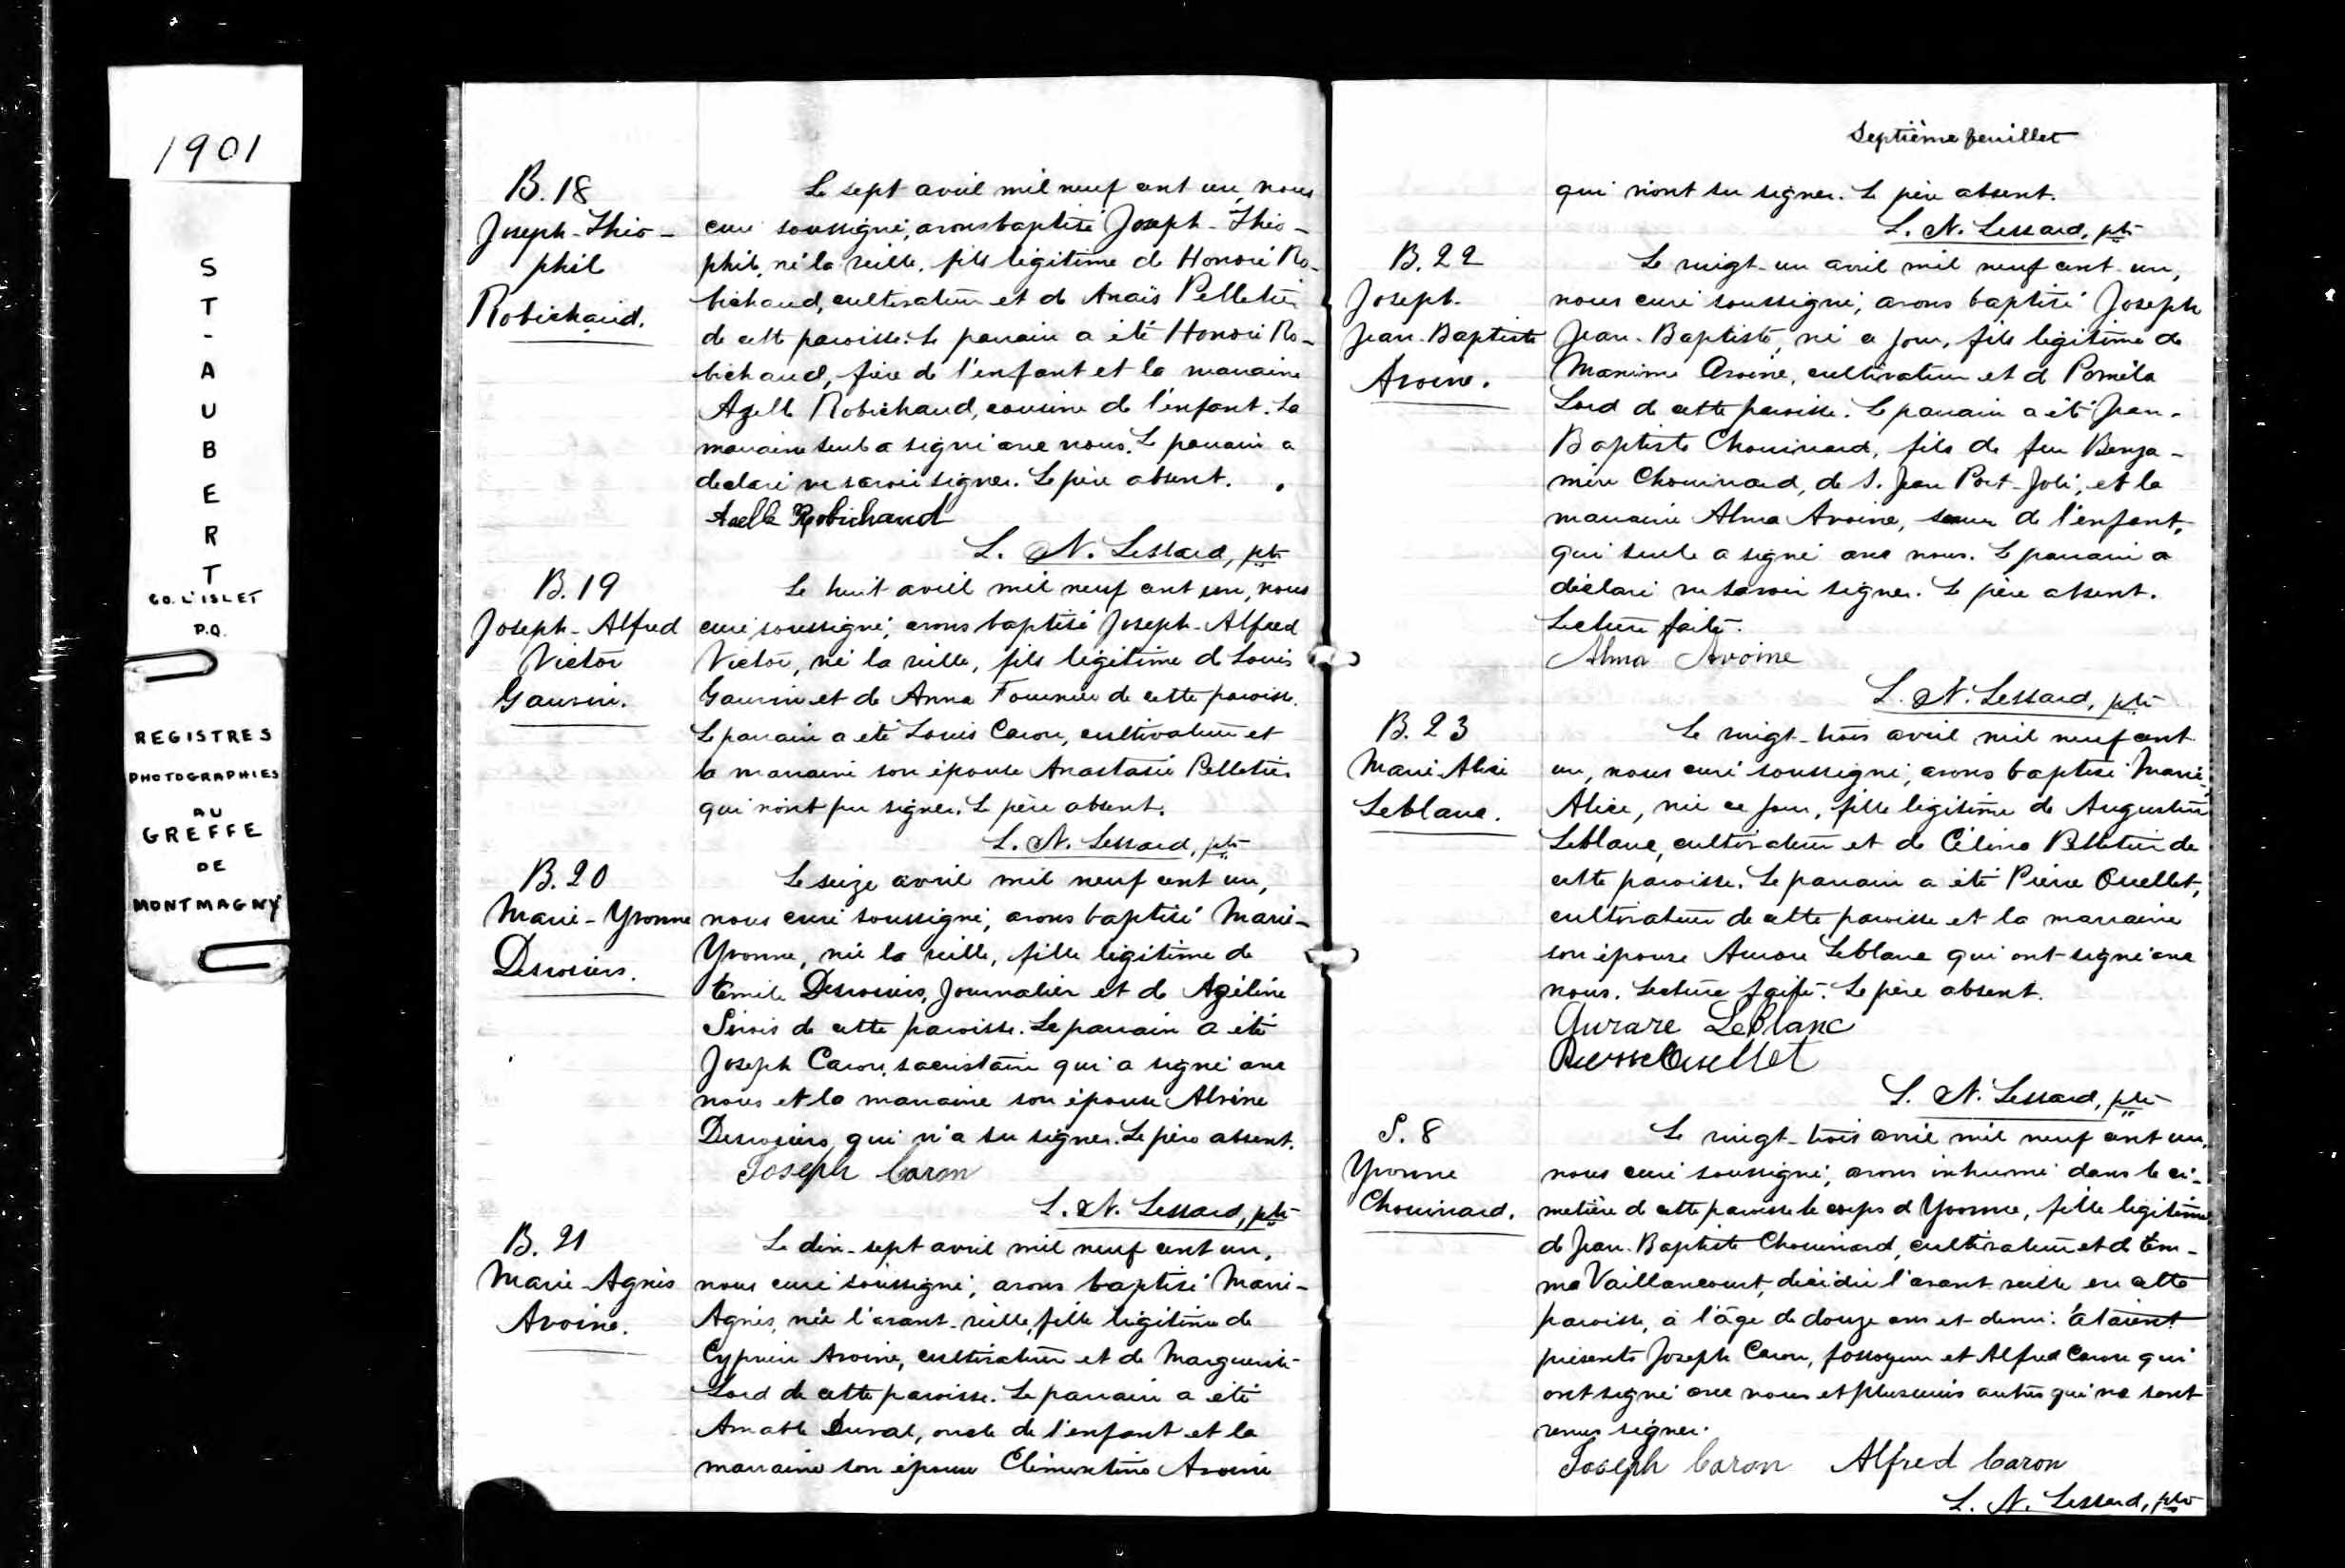 1901
ST-AUBERT
CO. L'ISLET
P.Q.
REGISTRES
PHOTOGRAPHIES
AU
GREFFE
DE
MONTMAGNY
B. 18
Joseph-Théo-
phil
Robichaud.
Le sept avril mil neuf cent un, nous
curé soussigné, avons baptisé Joseph-Théo-
phile, né la veille, fils légitime de Honoré Ro-
bichaud, cultivateur et de Anaïs Pelletier
de cette paroisse. Le parrain a été Honoré Ro-
bichaud, frère de l'enfant et la marraine
Azelle Robichaud, cousine de l'enfant. La
marraine seule a signé avec nous. Le parrain a
déclaré ne savoir signer. Le père absent.
Azelle Robichaud
L. N. Lessard, ptre
B. 19
Joseph-Alfred
Victor
Gauvin.
Le huit avril mil neuf cent un, nous
curé soussigné, avons baptisé Joseph-Alfred
Victor, né la veille, fils légitime de Louis
Gauvin et de Anna Fournier de cette paroisse.
Le parrain a été Louis Caron, cultivateur et
la marraine son épouse Anastasie Pelletier
qui n'ont pu signer. Le père absent.
L. N. Lessard, ptre
B. 20
Marie-Yvonne
Desrosiers.
Le seize avril mil neuf cent un,
nous curé soussigné, avons baptisé Marie-
Yvonne, née la veille, fille légitime de
Emile Desrosiers, journalier et de Azéline
Sirois de cette paroisse. Le parrain a été
Joseph Caron, sacristain qui a signé avec
nous et la marraine son épouse Alvine
Desrosiers, qui n'a su signer. Le père absent.
Joseph Caron
L. N. Lessard, ptre
B. 21
Marie-Agnès
Avoine.
Le dix-sept avril mil neuf cent un,
nous curé soussigné, avons baptisé Marie-
Agnès, née l'avant-veille, fille légitime de
Cyprien Avoine, cultivateur et de Marguerite
Lord de cette paroisse. Le parrain a été
Amable Duval, oncle de l'enfant et la
marraine son épouse Clémentine Avoine
Septième feuillet
qui n'ont su signer. Le père absent.
L. N. Lessard, ptre
B. 22
Joseph-
Jean-Baptiste
Avoine.
Le vingt-un avril mil neuf cent-un,
nous curé soussigné, avons baptisé Joseph
Jean-Baptiste, né ce jour, fils légitime de
Maxime Avoine, cultivateur et de Poméla
Lord de cette paroisse. Le parrain a été Jean-
Baptiste Chouinard, fils de feu Benja-
min Chouinard, de S. Jean Port-Joli, et la
marraine Alma Avoine, sœur de l'enfant,
qui seule a signé avec nous. Le parrain a
déclaré ne savoir signer. Le père absent.
Lecture faite.
Alma Avoine
L. N. Lessard, ptre
B. 23
Marie-Alice
Leblanc.
Le vingt-trois avril mil neuf cent
un, nous curé soussigné, avons baptisé Marie-
Alice, née ce jour, fille légitime de Augustin
Leblanc, cultivateur et de Célina Pelletier de
cette paroisse. Le parrain a été Pierre Ouellet,
cultivateur de cette paroisse et la marraine
son épouse Aurore Leblanc qui ont signé avec
nous. Lecture faite. Le père absent.
Aurare LeBlanc
Pierre Ouellet
L. N. Lessard, ptre
S. 8
Yvonne
Chouinard.
Le vingt-trois avril mil neuf cent un,
nous curé soussigné, avons inhumé dans le ci-
metière de cette paroisse le corps d'Yvonne, fille légitime
de Jean-Baptiste Chouinard, cultivateur et de Em-
ma Vaillancourt, décédée l'avant veille en cette
paroisse, à l'âge de douze ans et demi. Etaient
présents Joseph Caron, fossoyeur et Alfred Caron qui
ont signé avec nous et plusieurs autres qui ne sont
venus signer.
Joseph Caron Alfred Caron
L. N. Lessard, ptre